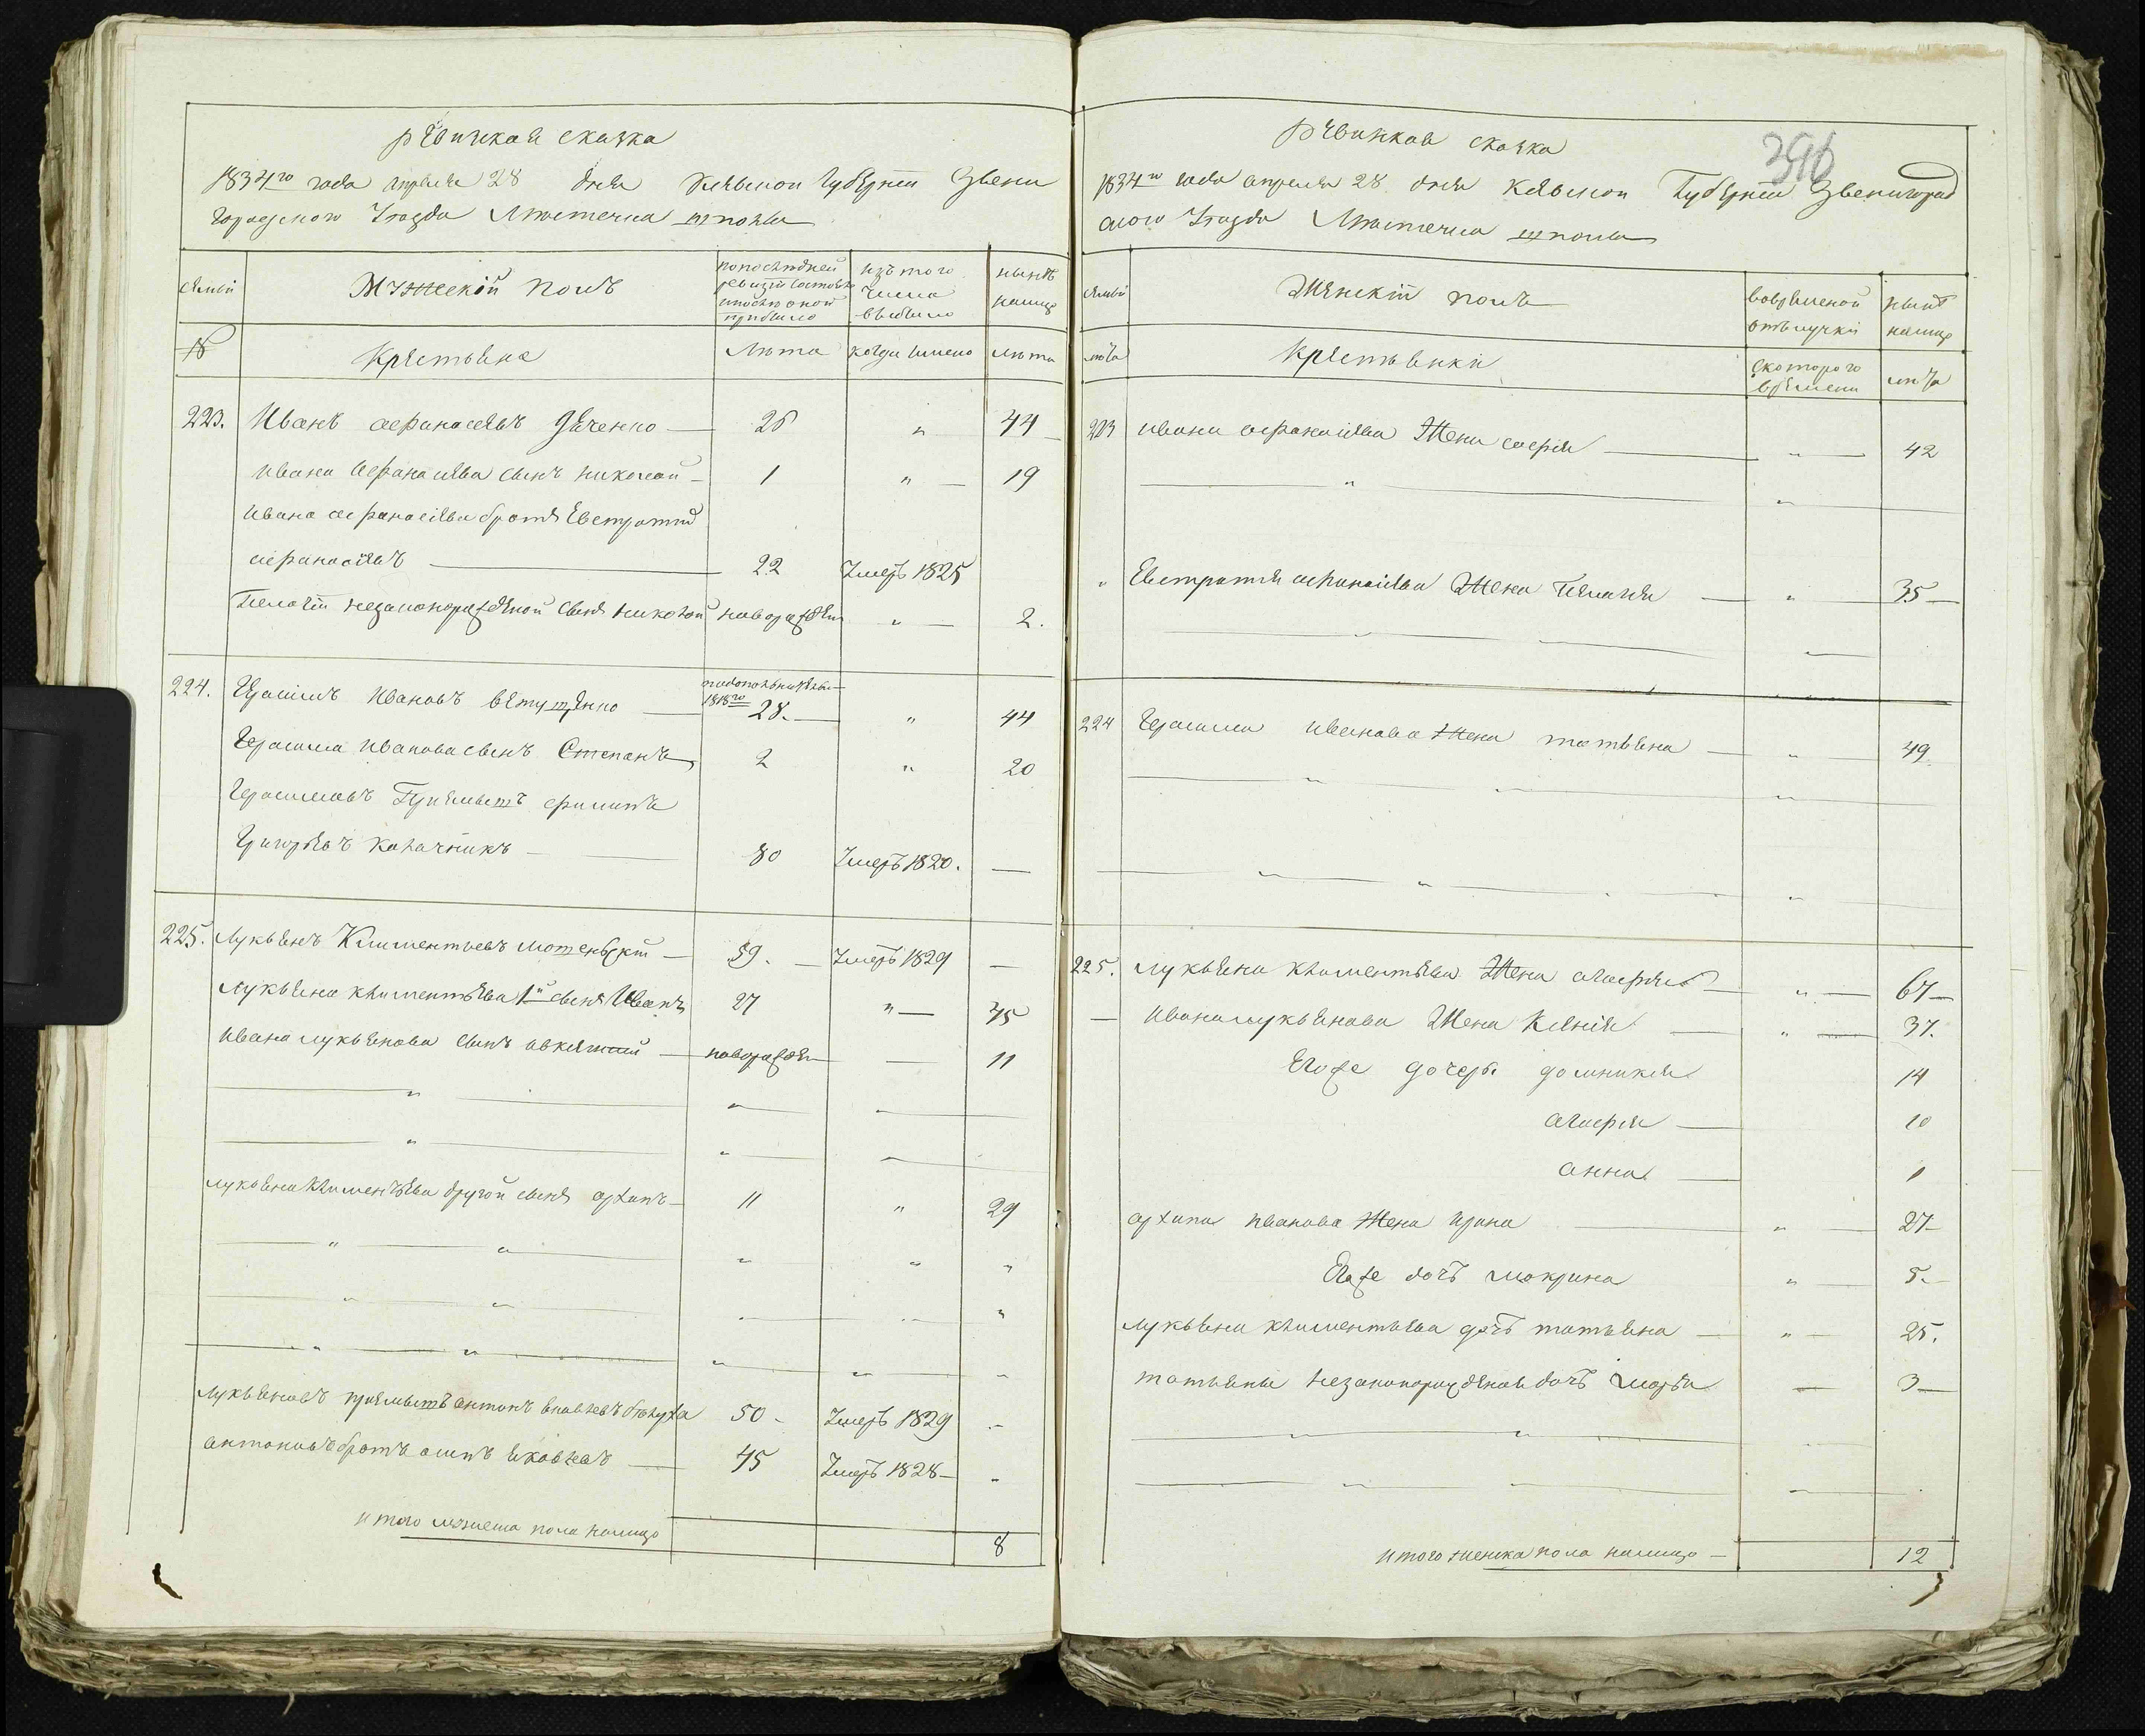 рѣвижкая скаска
1834го года апрѣля 28 дня Кіевской Губѣрніи Звени
городского Уѣзда Мѣстечка шполы
сѣмьи
Мужескій полъ
по последней
ревизіи состояло
и после оной
прибыло
изъ того
числа
выбыло
нынѣ
на лицо
№
Крѣстьяне
лѣта
когда имено
лѣта
223. Иванъ афанасѣвъ дяченко — 26 „ 44
ивана афанасѣва сынъ николай — 1 „ 19
ивана афанасѣва братъ Евстратий
афанасѣвъ — 22 Умеръ 1825
Пелагіи незаконорожденой сынъ николай новорожден „ 2.
224. Герасимъ Ивановъ вѣтушенко — 1818го 28. „ 44
Герасима Иванова сынъ Степанъ 2 „ 20
Герасимовъ Приѣмышъ филипъ
Григорѣвъ калачникъ — 80 Умеръ 1820. —
225. лукьянъ Климентьевъ мошенскій — 59. Умеръ 1829 —
лукьяна климентѣва 1й сынъ Иванъ 27 „ 45
Ивана лукьянова сынъ авксентий — новорожден — 11
лукьяна климентѣва другой сынъ архипъ — 11 „ 29
лукьяновъ приѣмышъ антонъ яковлевъ 50 Умеръ 1829 „
антоновъ братъ осипъ яковлевъ — 45 Умеръ 1828 — „
итого мужеска пола налицо 8
рѣвижкая скаска
396
1834го года апрѣля 28 дня Кіевской Губѣрніи Звенигород
ского Уѣзда Мѣстечка шполы
сѣмьи
Женскій полъ
во врѣменой
отълучки
нынѣ
налицо
Крѣстьянки
с которого
врѣмени
лѣта
223 ивана афанасѣва Жена софія — „ 42
„ Евстратия афанасѣва Жена Пелагия — „ 35
224 Герасима иванова Жена татьяна — „ 49
225. лукьяна климентѣва Жена агафия — „ 67
— Ивана лукьянова Жена Ксѣнія — „ 37.
Егоже дочери домникия 14
агафия — 10
анна — 1
архипа иванова Жена ирина „ 27
Егоже дочь макрина „ 5.
лукьяна климентьѣва дочь татьяна — „ 25.
татьяны незаконорожденая дочь марья — 3
итого женска пола налицо — 12